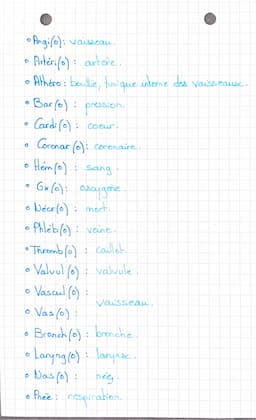 • Angi(o): vaisseau.
• Artéri(o) : artère.
• Athéro : bouillie, tunique interne des vaisseaux.
• Bar(o) : pression.
• Cardi(o) : coeur.
• Coronar(o): coronaire.
• Hém(o) : sang.
• Ox(o): oxygène.
• Nécr(o) : mort.
• Phléb(o) : veine.
• Thromb(o) : caillot.
• Valvul(o) : valvule.
• Vascul(o) :
vaisseau.
• Vas(o) :
• Bronch(o) : bronche.
• Laryng(o) : larynx.
• Nas(o) : nez.
• Pnée : respiration.